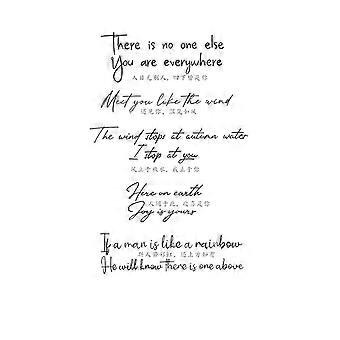 There is no one else
You are everywhere
入目无别人，四下皆是你
Meet you like the wind
遇见你，
The wind stops at autumn water
I stop at you
风止于秋水，我止于你
Here on earth
Joy is yours
If a man is like a rainbow
斯人若彩虹，遇上方知有
He will know there is one above